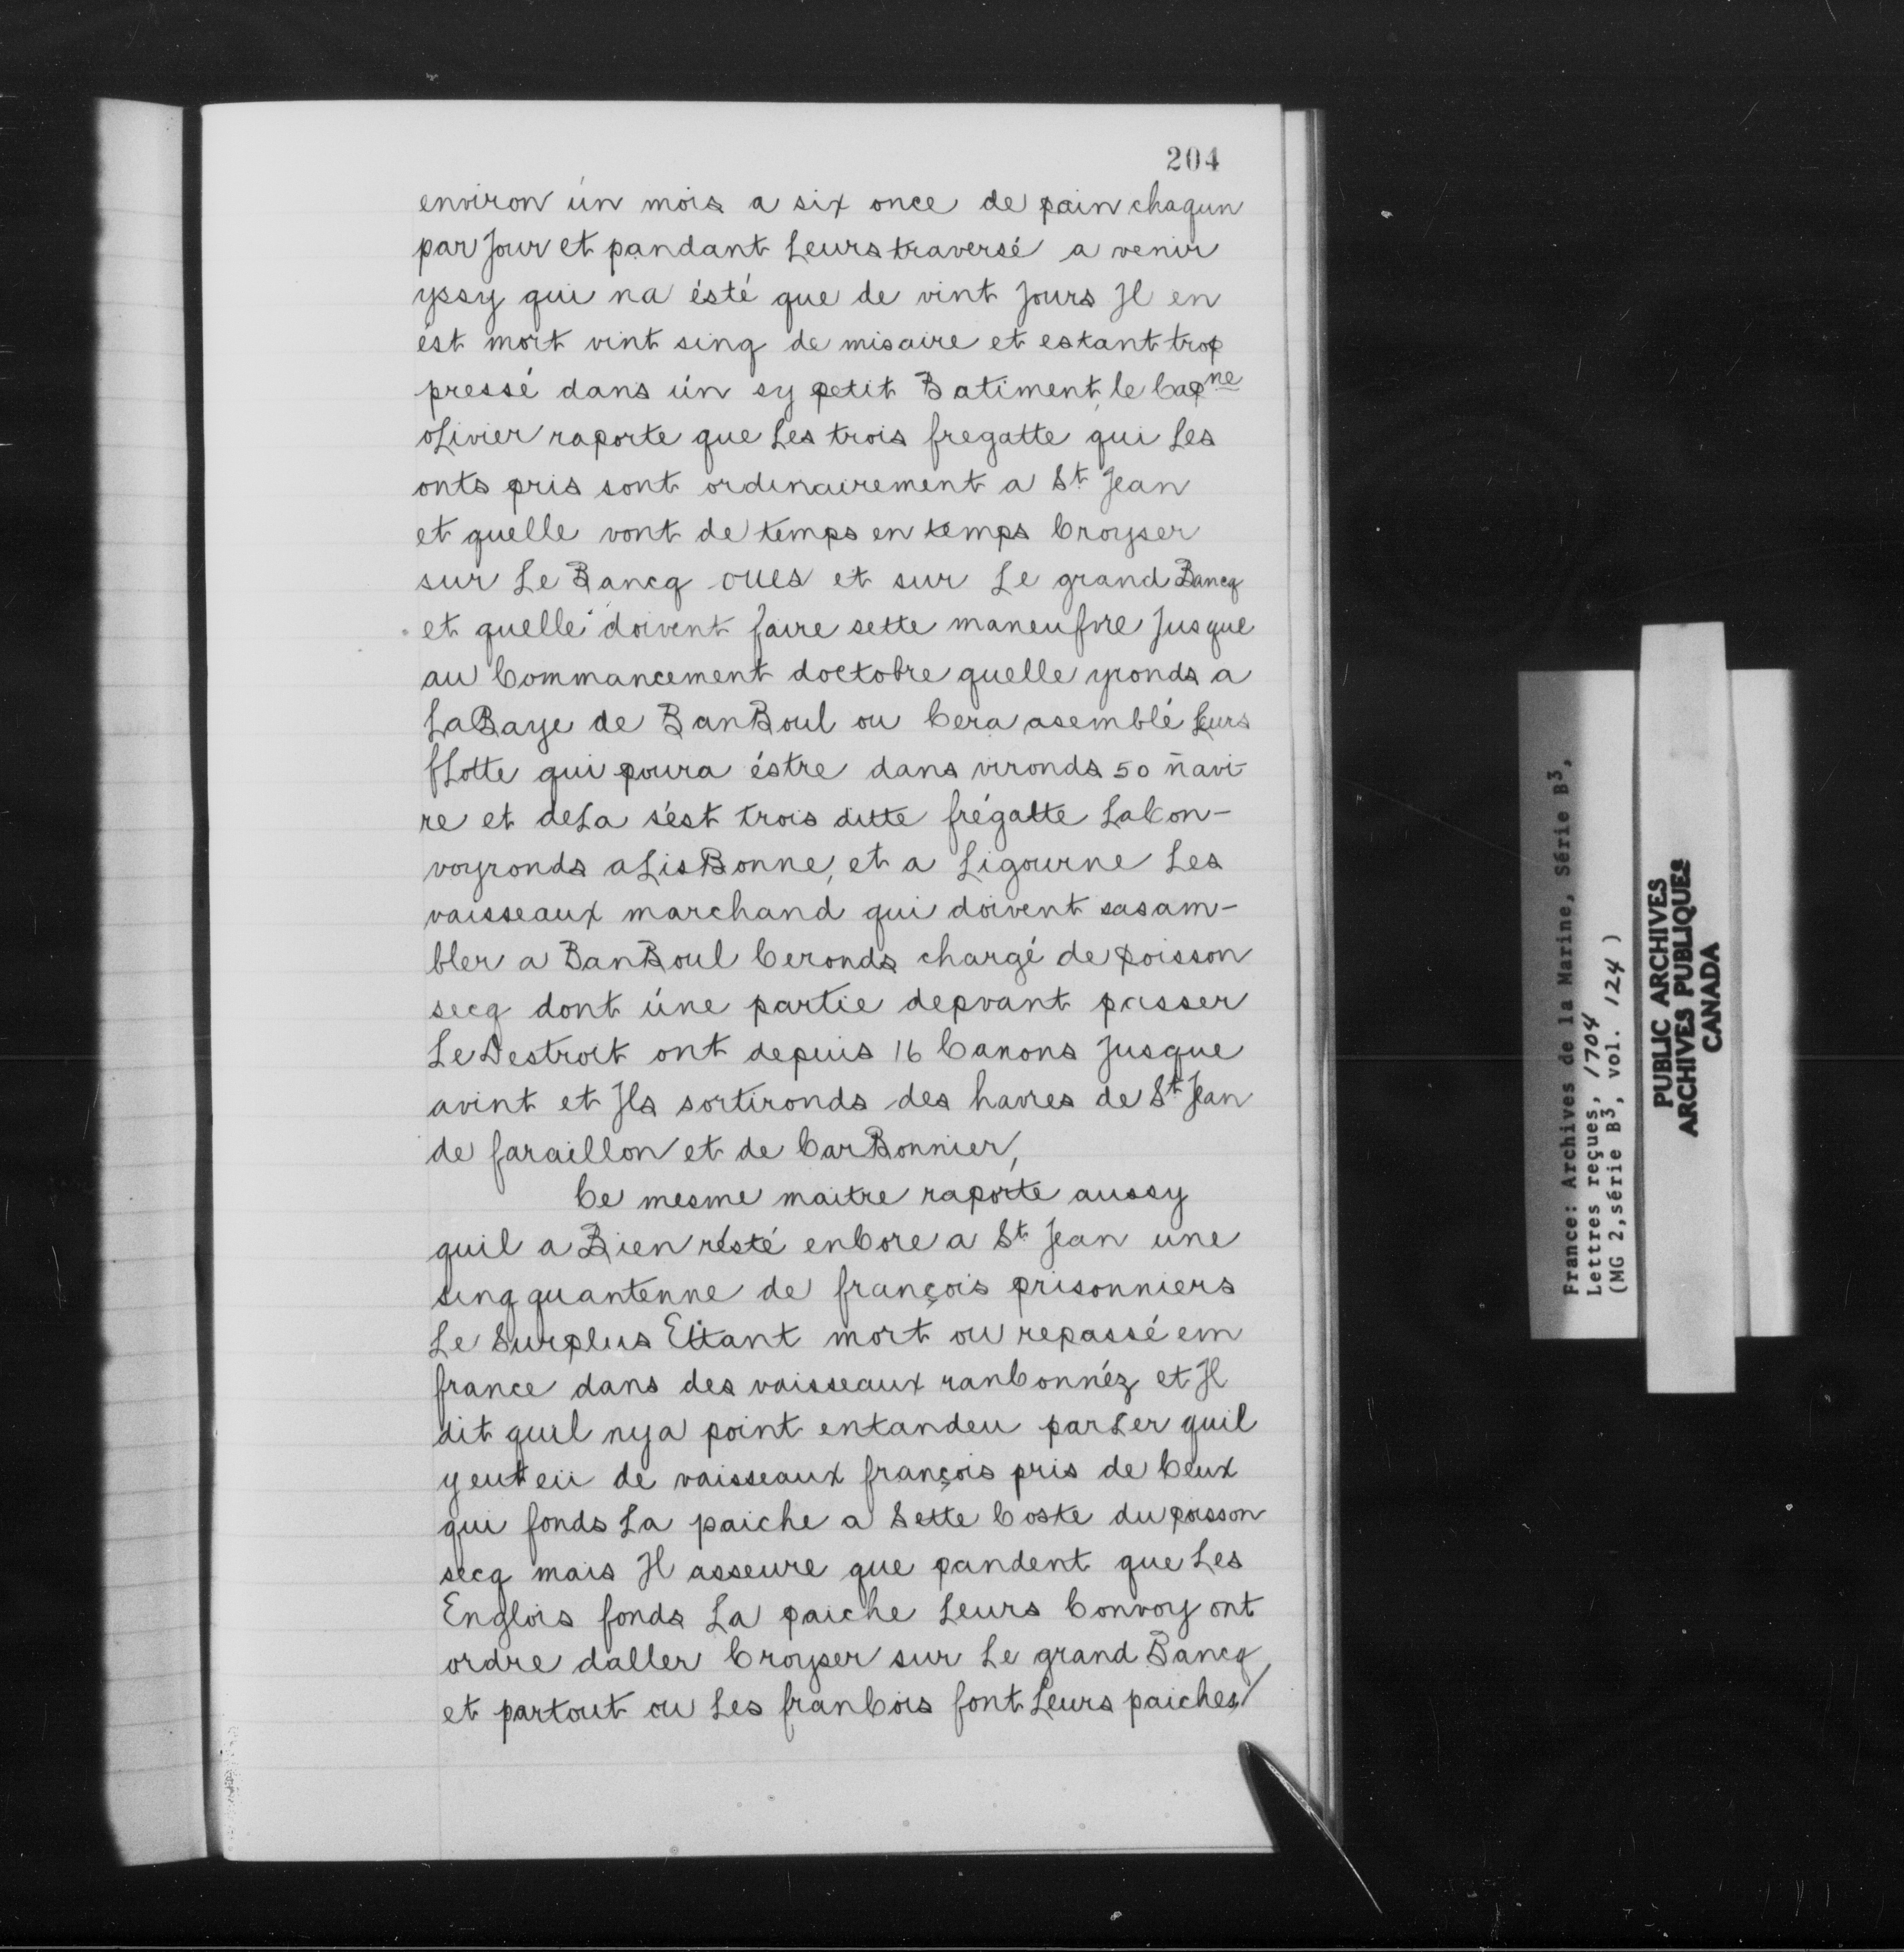 204
environ ún mois a six once de pain chaqun
par Jour et pandant Leurs traversé a venir
yssy qui na ésté que de vint Jours Jl en
ést mort vint sinq de misaire et estant trop
pressé dans ún sy petit Batiment, le Capne
oLivier raporte que Les trois fregatte qui Les
onts pris sont ordinairement a St Jean
et quelle vont de temps en temps Croyser
sur Le Bancq oues et sur Le grand Bancq
et quelle doivent faire sette maneufvre Jusque
au Commancement doctobre quelle yronds a
LaBaye de BanBoul ou Cera asemblé Leurs
fLotte qui poura éstre dans vironds 50 navi-
re et deLa sést trois ditte frégatte LaCon-
voyronds aLisBonne, et a Ligourne Les
vaisseaux marchand qui doivent sasam-
bler a BanBoul Ceronds chargé de poisson
secq dont úne partie depvant passer
Le Destroit ont depuis 16 Canons Jusque
avint et Jls sortironds des havres de St Jean
de faraillon et de CarBonnier,
Ce mesme maitre raporte aussy
quil a Bien résté enCore a St Jean une
sinq quantenne de françois prisonniers
Le Surplus Ettant mort ou repassé em
france dans des vaisseaux ranConnéz et Jl
dit quil nya point entandeu parLer quil
y eut eü de vaisseaux françois pris de Ceux
qui fonds La paiche a Sette Coste du poisson
secq mais Jl asseure que pandent que Les
Englois fonds La paiche Leurs Convoy ont
ordre daller Croyser sur Le grand Bancq
et partout ou Les franCois font Leurs paiches/
France: Archives de la Marine, Série B3,
Lettres reçues, 1704
(MG 2, série B3, vol. 124)
PUBLIC ARCHIVES
ARCHIVES PUBLIQUES
CANADA